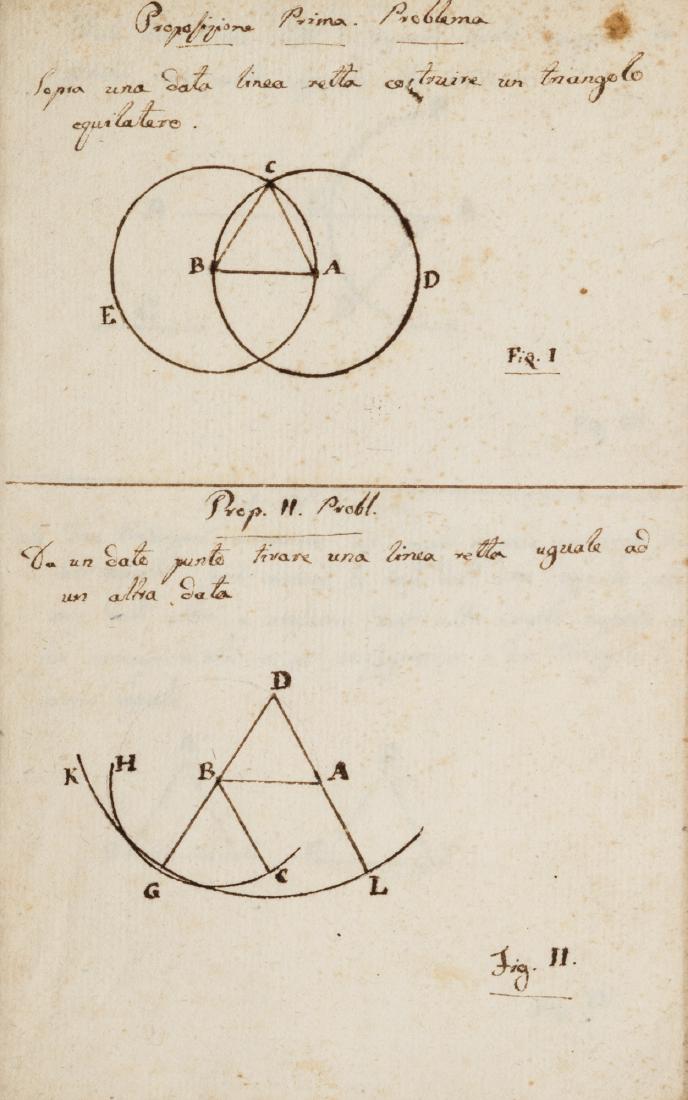 Proposizione Prima. Problema
Sopra una data linea retta costruire un triangolo
equilatero.
C
B A D
E
Fig. I
Prop. II. Probl.
Da un dato punto tirare una linea retta uguale ad
un altra data
D
K H B A
G C L
Fig. II.